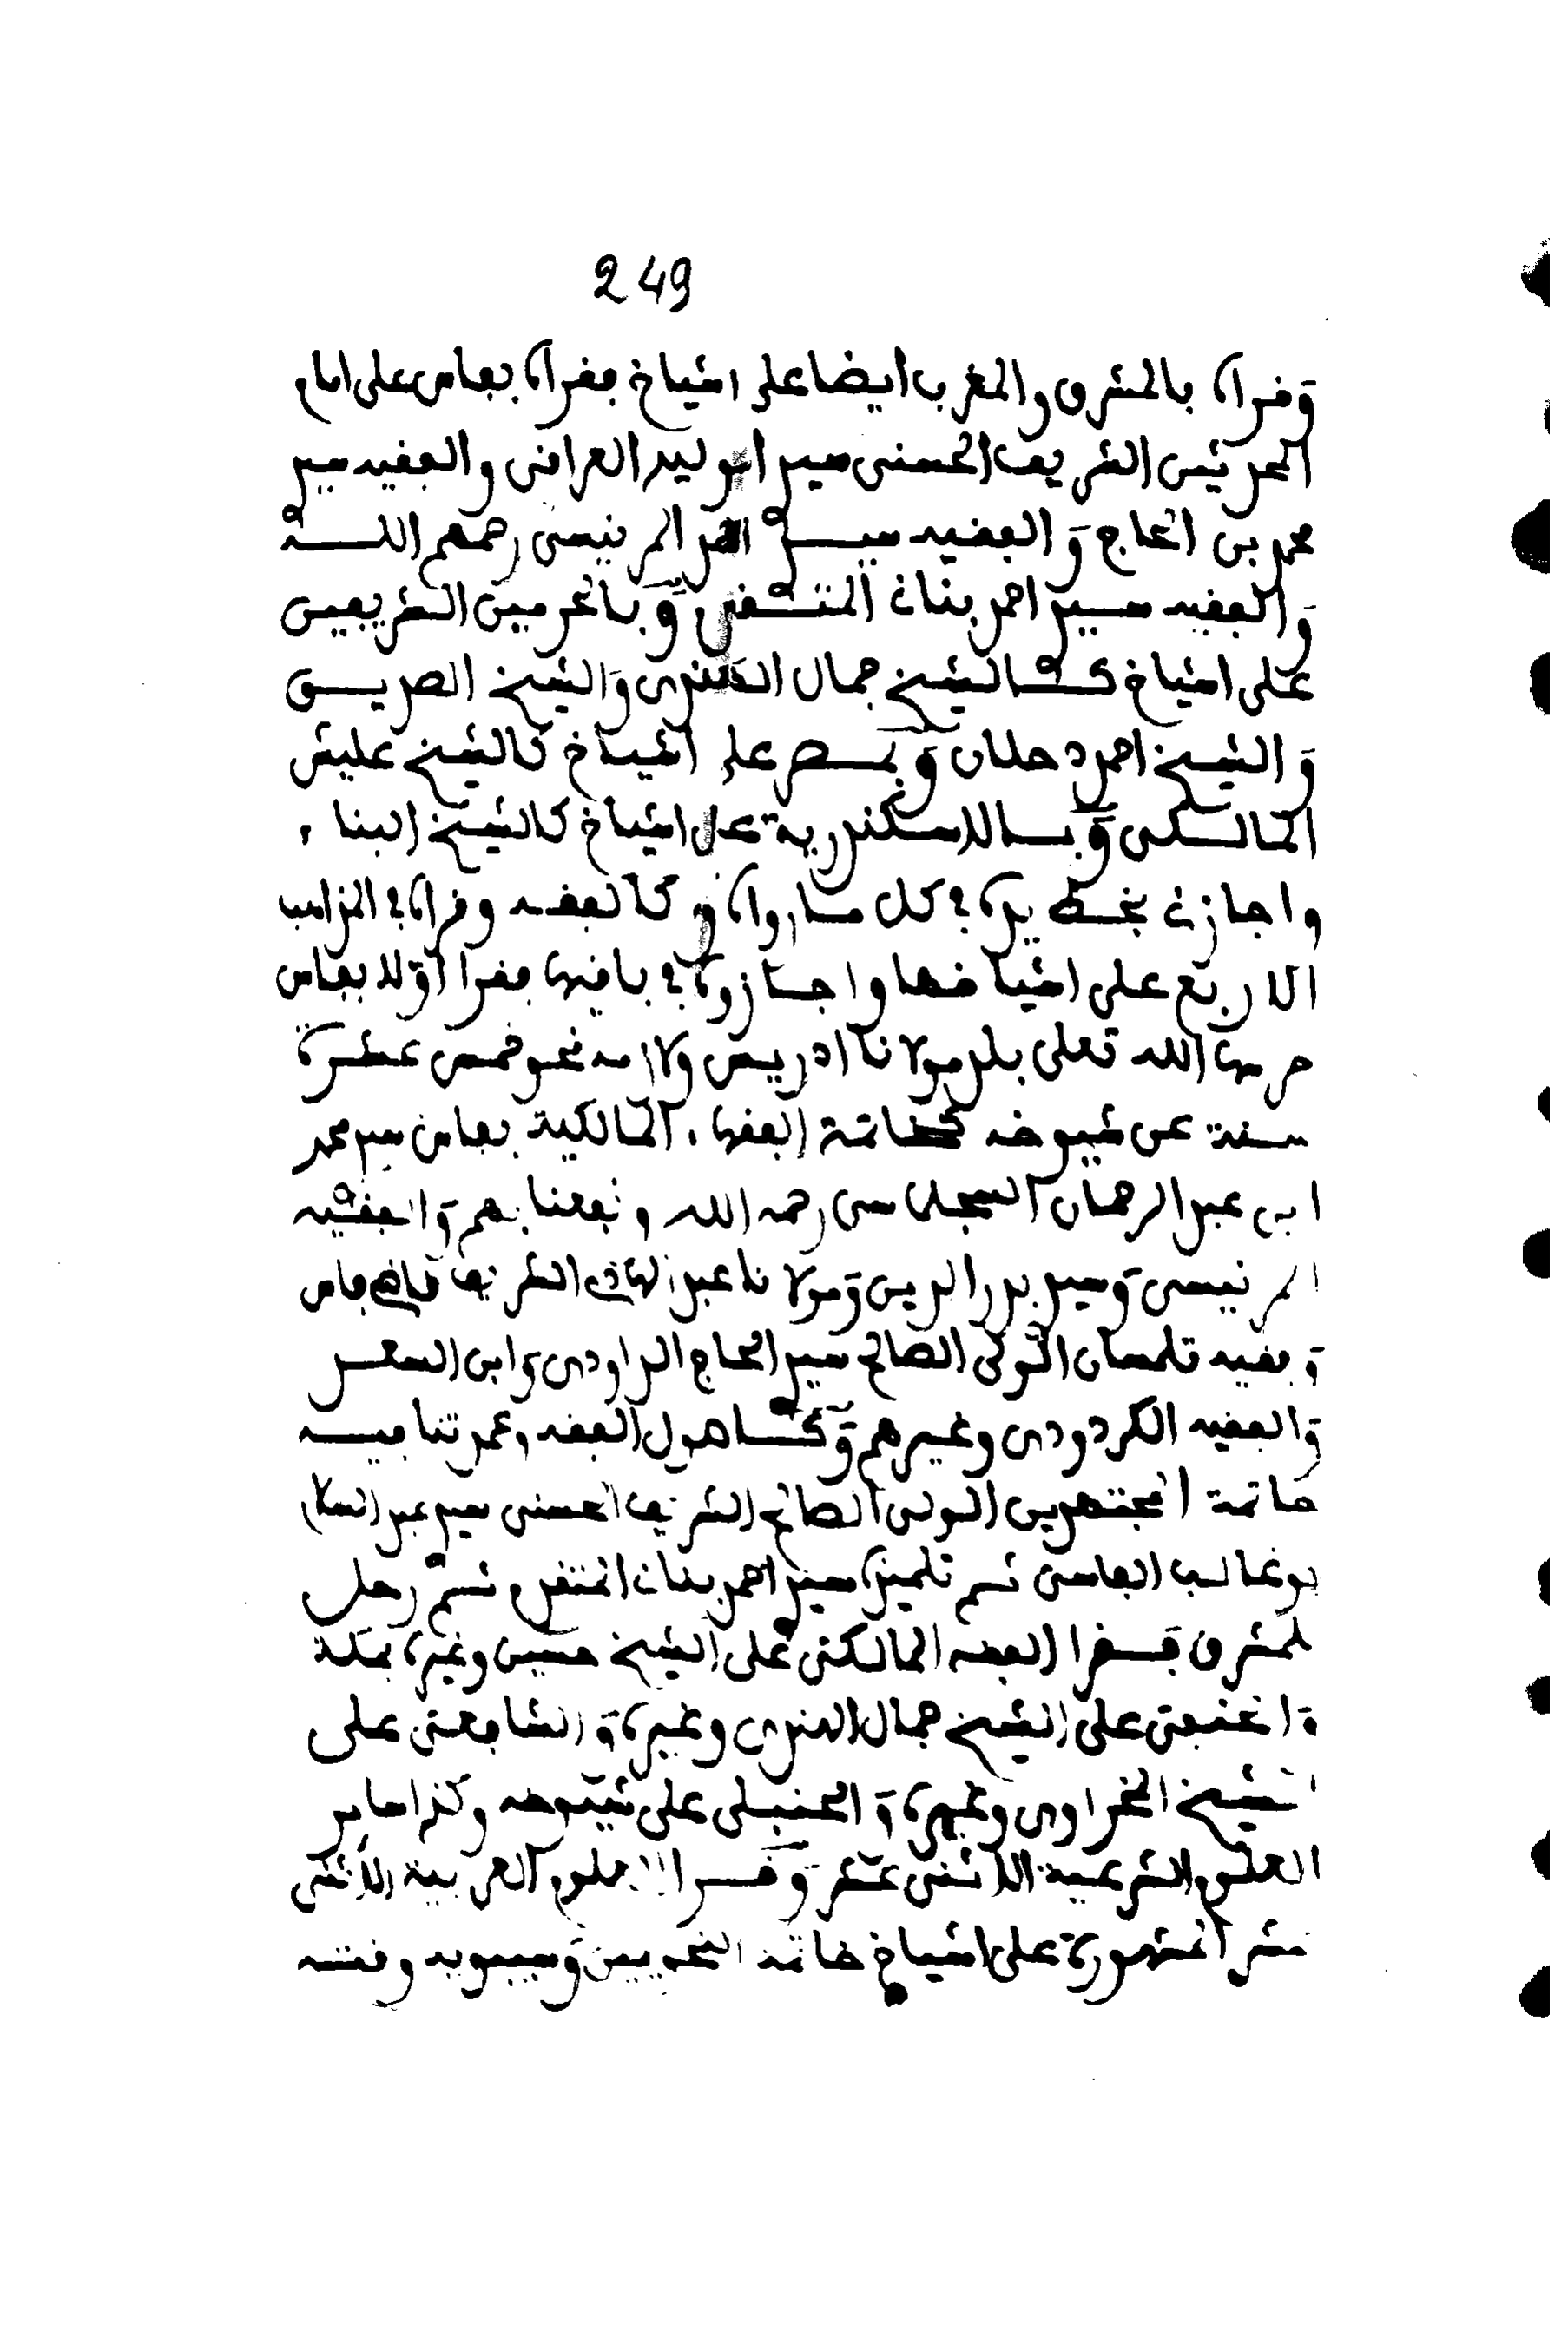 249
وقراه بالمشرق والمغرب ايضا على اشياخ فقراه بفاس على امام
المحدثين الشريف الحسنى سيد الوليد العراقى والفقيه سيد
محمد بن الحاج والفقيه سيد المرنيسى رحمهم الله
والفقيه سيد احمد بنان المتسفى وبالحرمين الشريفين
على اشياخ كالشيخ جمال والشيخ الصديق
والشيخ احمد دحلان وبمصر على اشياخ كالشيخ عليش
المالكى وبالاسكندرية على اشياخ كالشيخ البناء
واجازه بخط يده فى كل ما رواه وكالفقه وقراه فى المذاهب
الاربع على اشياخها واجازوه فى باقيها فقرا اولا بفاس
حرسها الله تعلى بلد مولانا ادريس ولازمه نحو خمس عشرة
سنة عن شيوخه كخاتمة الفقهاء المالكية بفاس سيد محمد
ابن عبد الرحمان السجلماسى رحمه الله ونفعنا بهم والفقيه
المرنيسى وسيد بدر الدين ومولانا عبد الهادى الشريف قاضى فاس
وفقيه تلمسان الولى الصالح سيد الحاج الداودى وابن السعد
والفقيه الكردودى وغيرهم وكاهول الفقه وعمدتنا فيه
خاتمة المجتهدين الولى الصالح الشريف الحسنى سيد عبد السلام
بوغالب الفاسى ثم تلميذه سيد احمد بنان المتقن ثم رحل
للمشرق فقرا الفقه المالكى على الشيخ حسين وغيره بمكة
والحنفى على الشيخ جمال وغيره والشافعى على
الشيخ النحراوى وغيره والحنبلى على شيوخه وكذا ساير
العلوم الشرعية الاثنى عشر وقرا العلوم العربية الاثنى
عشر المشهورة على اشياخ خاتمة النحويين وسيبويه وقته